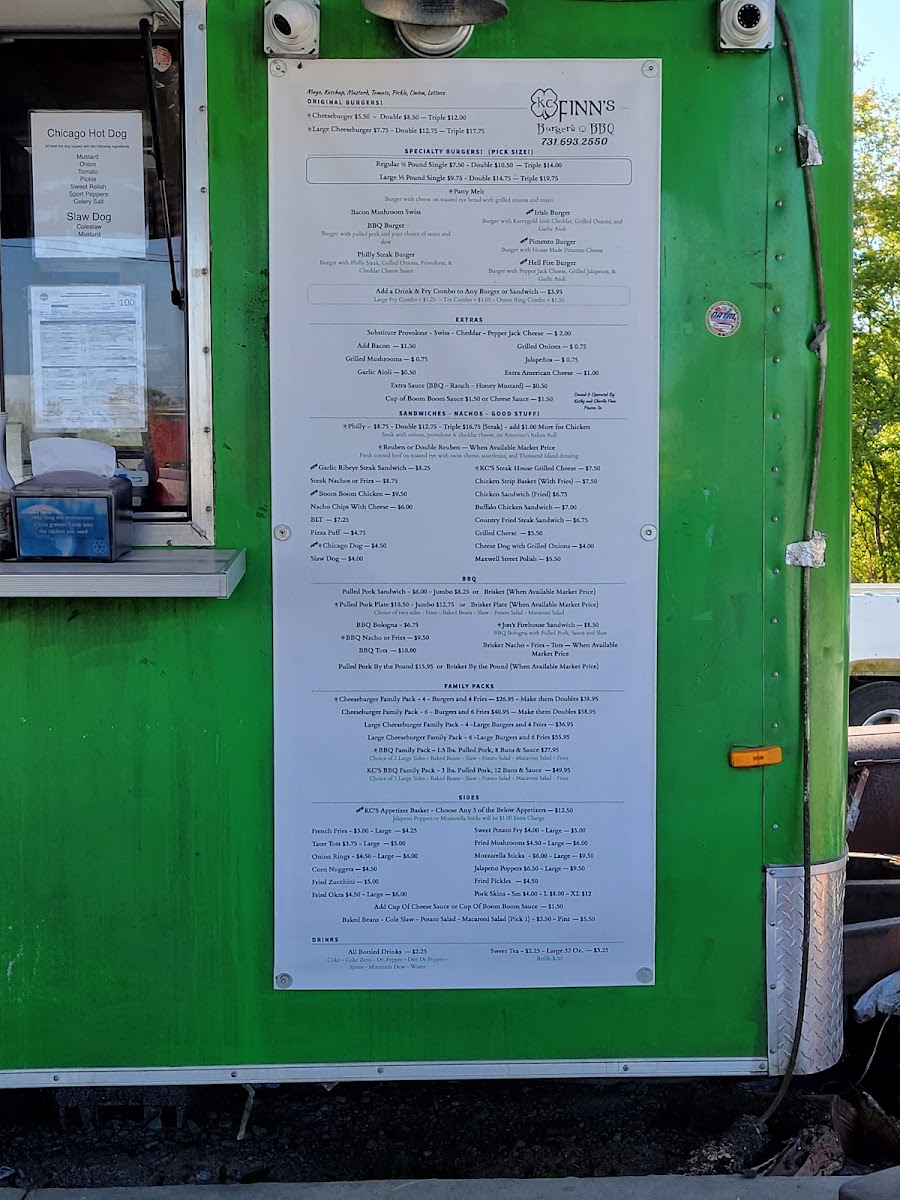 Chicago Hot Dog
All beef hot dog topped with the following ingredients
Mustard
Onion
Tomato
Pickle
Sweet Relish
Sport Peppers
Celery Salt
Slaw Dog
Coleslaw
Mustard
100
Help keep the environment
a little greener, only take
the napkins you need.
Mayo, Ketchup, Mustard, Tomato, Pickle, Onion, Lettuce
ORIGINAL BURGERS!
Cheeseburger $5.50 - Double $8.50 — Triple $12.00
Large Cheeseburger $7.75 - Double $12.75 — Triple $17.75
KC FINN'S
Burgers BBQ
731.693.2550
SPECIALTY BURGERS! (PICK SIZE!)
Regular ¼ Pound Single $7.50 - Double $10.50 — Triple $14.00
Large ½ Pound Single $9.75 - Double $14.75 — Triple $19.75
Patty Melt
Burger with cheese on toasted rye bread with grilled onions and mayo
Bacon Mushroom Swiss
BBQ Burger
Burger with pulled pork and your choice of sauce and
slaw
Philly Steak Burger
Burger with Philly Steak, Grilled Onions, Provolone, &
Cheddar Cheese Sauce
Irish Burger
Burger with Kerrygold Irish Cheddar, Grilled Onions, and
Garlic Aioli
Pimento Burger
Burger with House Made Pimento Cheese
Hell Fire Burger
Burger with Pepper Jack Cheese, Grilled Jalapenos, &
Garlic Aioli
Add a Drink & Fry Combo to Any Burger or Sandwich — $3.95
Large Fry Combo + $1.25 - Tot Combo + $1.05 - Onion Ring Combo + $1.50
EXTRAS
Substitute Provolone - Swiss - Cheddar - Pepper Jack Cheese — $ 2.00
Add Bacon — $1.50
Grilled Onions — $ 0.75
Grilled Mushrooms — $ 0.75
Jalapeños — $ 0.75
Garlic Aioli — $0.50
Extra American Cheese — $1.00
Extra Sauce (BBQ - Ranch - Honey Mustard) — $0.50
Cup of Boom Boom Sauce $1.50 or Cheese Sauce — $1.50
Owned & Operated By
SANDWICHES - NACHOS - GOOD STUFF!
Philly - $8.75 - Double $12.75 - Triple $16.75 (Steak) - add $1.00 More for Chicken
Steak with onions, provolone & cheddar cheese, on Amoroso's Italian Roll
Reuben or Double Reuben — When Available Market Price
Fresh corned beef on toasted rye with swiss cheese, sauerkraut, and Thousand Island dressing
Garlic Ribeye Steak Sandwich — $8.25
Steak Nachos or Fries — $8.75
Boom Boom Chicken — $9.50
Nacho Chips With Cheese — $6.00
BLT — $7.25
Pizza Puff — $4.75
Chicago Dog — $4.50
Slaw Dog — $4.00
KC'S Steak House Grilled Cheese — $7.50
Chicken Strip Basket (With Fries) — $7.50
Chicken Sandwich (Fried) $6.75
Buffalo Chicken Sandwich — $7.00
Country Fried Steak Sandwich — $6.75
Grilled Cheese — $5.50
Cheese Dog with Grilled Onions — $4.00
Maxwell Street Polish — $5.50
BBQ
Pulled Pork Sandwich - $6.00 - Jumbo $8.25 or Brisket (When Available Market Price)
Pulled Pork Plate $10.50 - Jumbo $12.75 or Brisket Plate (When Available Market Price)
Choice of two sides - Fries - Baked Beans - Slaw - Potato Salad - Macaroni Salad
BBQ Bologna - $6.75
BBQ Nacho or Fries — $9.50
BBQ Tots — $10.00
Jon's Firehouse Sandwich — $8.50
BBQ Bologna with Pulled Pork, Sauce and Slaw
Brisket Nacho - Fries - Tots — When Available
Market Price
Pulled Pork By the Pound $15.95 or Brisket By the Pound (When Available Market Price)
FAMILY PACKS
Cheeseburger Family Pack - 4 - Burgers and 4 Fries — $26.95 - Make them Doubles $38.95
Cheeseburger Family Pack - 6 - Burgers and 6 Fries $40.95 — Make them Doubles $58.95
Large Cheeseburger Family Pack - 4 -Large Burgers and 4 Fries — $36.95
Large Cheeseburger Family Pack - 6 -Large Burgers and 6 Fries $55.95
BBQ Family Pack - 1.5 lbs. Pulled Pork, 8 Buns & Sauce $27.95
Choice of 2 Large Sides - Baked Beans - Slaw - Potato Salad - Macaroni Salad - Fries
KC'S BBQ Family Pack - 3 lbs. Pulled Pork, 12 Buns & Sauce — $49.95
Choice of 3 Large Sides - Baked Beans - Slaw - Potato Salad - Macaroni Salad - Fries
SIDES
KC'S Appetizer Basket - Choose Any 3 of the Below Appetizers — $12.50
Jalapeno Poppers or Mozzarella Sticks will be $1.00 Extra Charge
French Fries - $3.00 - Large — $4.25
Tater Tots $3.75 - Large — $5.00
Onion Rings - $4.50 - Large — $6.00
Corn Nuggets — $4.50
Fried Zucchini — $5.00
Fried Okra $4.50 - Large — $6.00
Sweet Potato Fry $4.00 - Large — $5.00
Fried Mushrooms $4.50 - Large — $6.00
Mozzarella Sticks - $6.00 - Large — $9.50
Jalapeno Poppers $6.50 - Large — $9.50
Fried Pickles — $4.50
Pork Skins - Sm $4.00 - L $8.00 - XL $12
Add Cup Of Cheese Sauce or Cup Of Boom Boom Sauce — $1.50
Baked Beans - Cole Slaw - Potato Salad - Macaroni Salad (Pick 1) - $3.50 - Pint — $5.50
DRINKS
All Bottled Drinks — $2.25
Coke - Coke Zero - Dr. Pepper - Diet Dr Pepper -
Sprite - Mountain Dew - Water
Sweet Tea - $2.25 - Large 32 Oz. — $3.25
Refills $.50